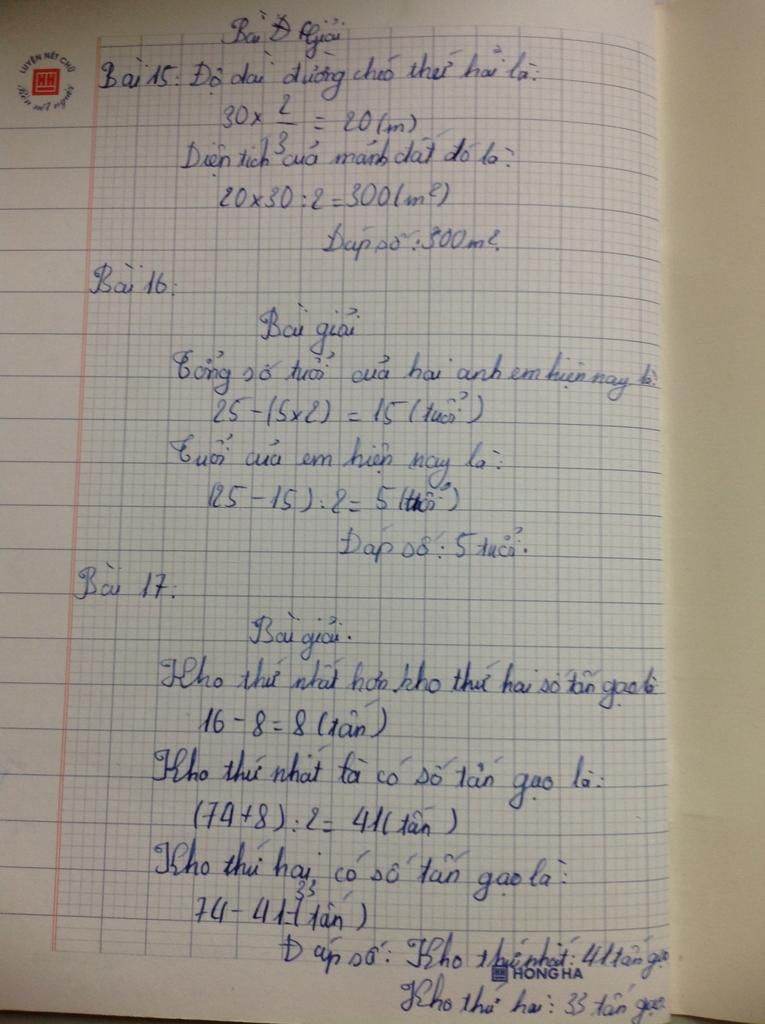 Bài Giải
LUYỆN NÉT CHỮ
Rèn nết người
Bài 15: Độ dài đường chéo thứ hai là:
30 × 2/3 = 20 (m)
Diện tích của mảnh đất đó là:
20 × 30 : 2 = 300 (m²)
Đáp số: 300m².
Bài 16:
Bài giải
Tổng số tuổi của hai anh em hiện nay là:
25 - (5 × 2) = 15 (tuổi)
Tuổi của em hiện nay là:
(25 - 15) : 2 = 5 (tuổi)
Đáp số: 5 tuổi.
Bài 17:
Bài giải.
Kho thứ nhất hơn kho thứ hai số tấn gạo là
16 - 8 = 8 (tấn)
Kho thứ nhất có số tấn gạo là:
(74 + 8) : 2 = 41 (tấn)
Kho thứ hai có số tấn gạo là:
74 - 41 = 33 (tấn)
Đáp số: Kho thứ nhất: 41 tấn gạo
HONG HA
Kho thứ hai: 33 tấn gạo